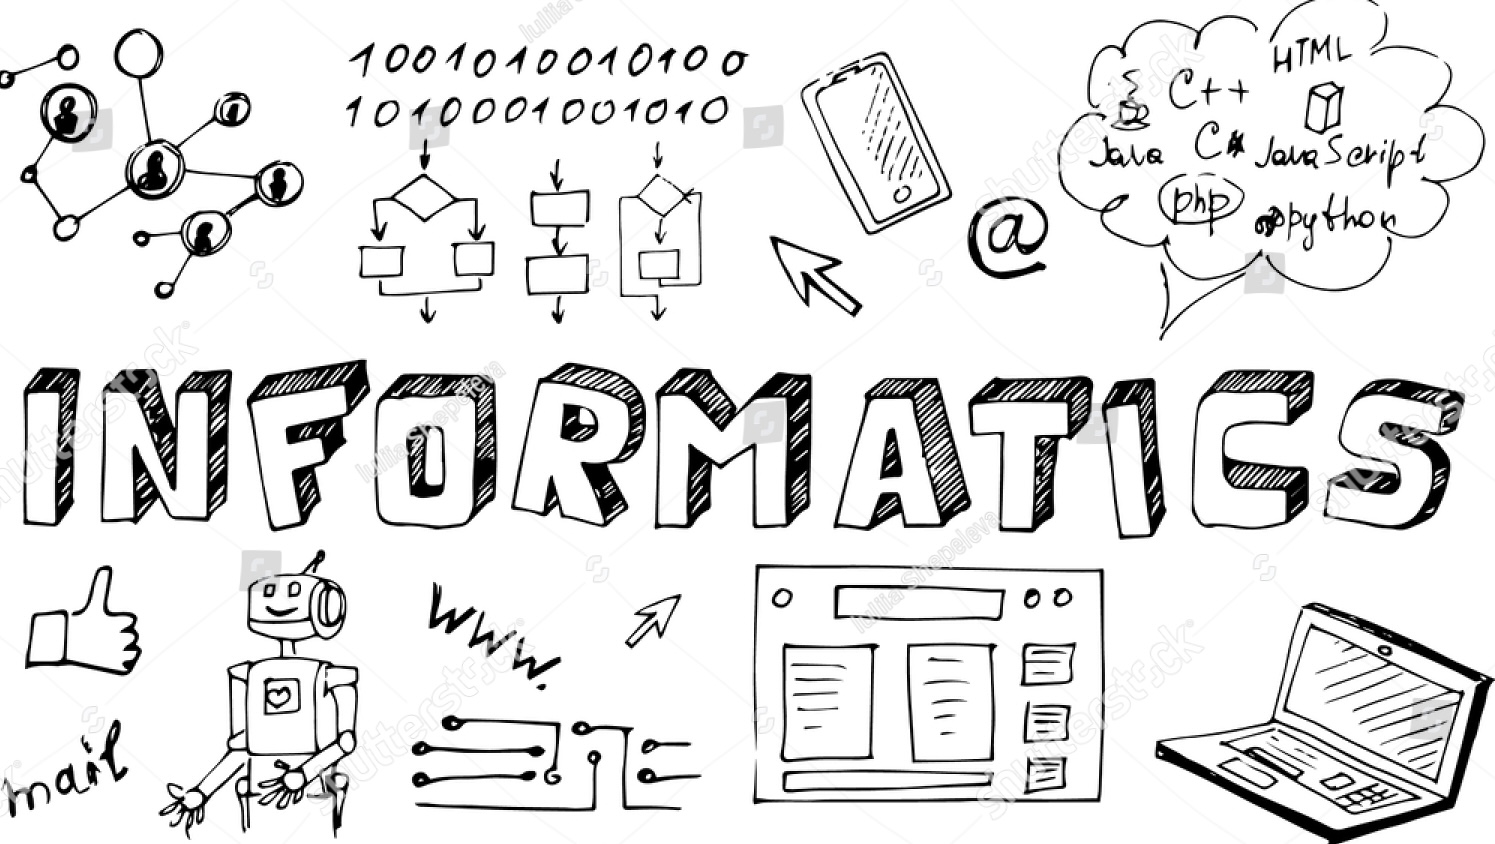 1001010010100
1010001001010
HTML
C++
Java
C#
JavaScript
php
python
@
INFORMATICS
www.
mail
shutterstock
Iuliia shepeleva